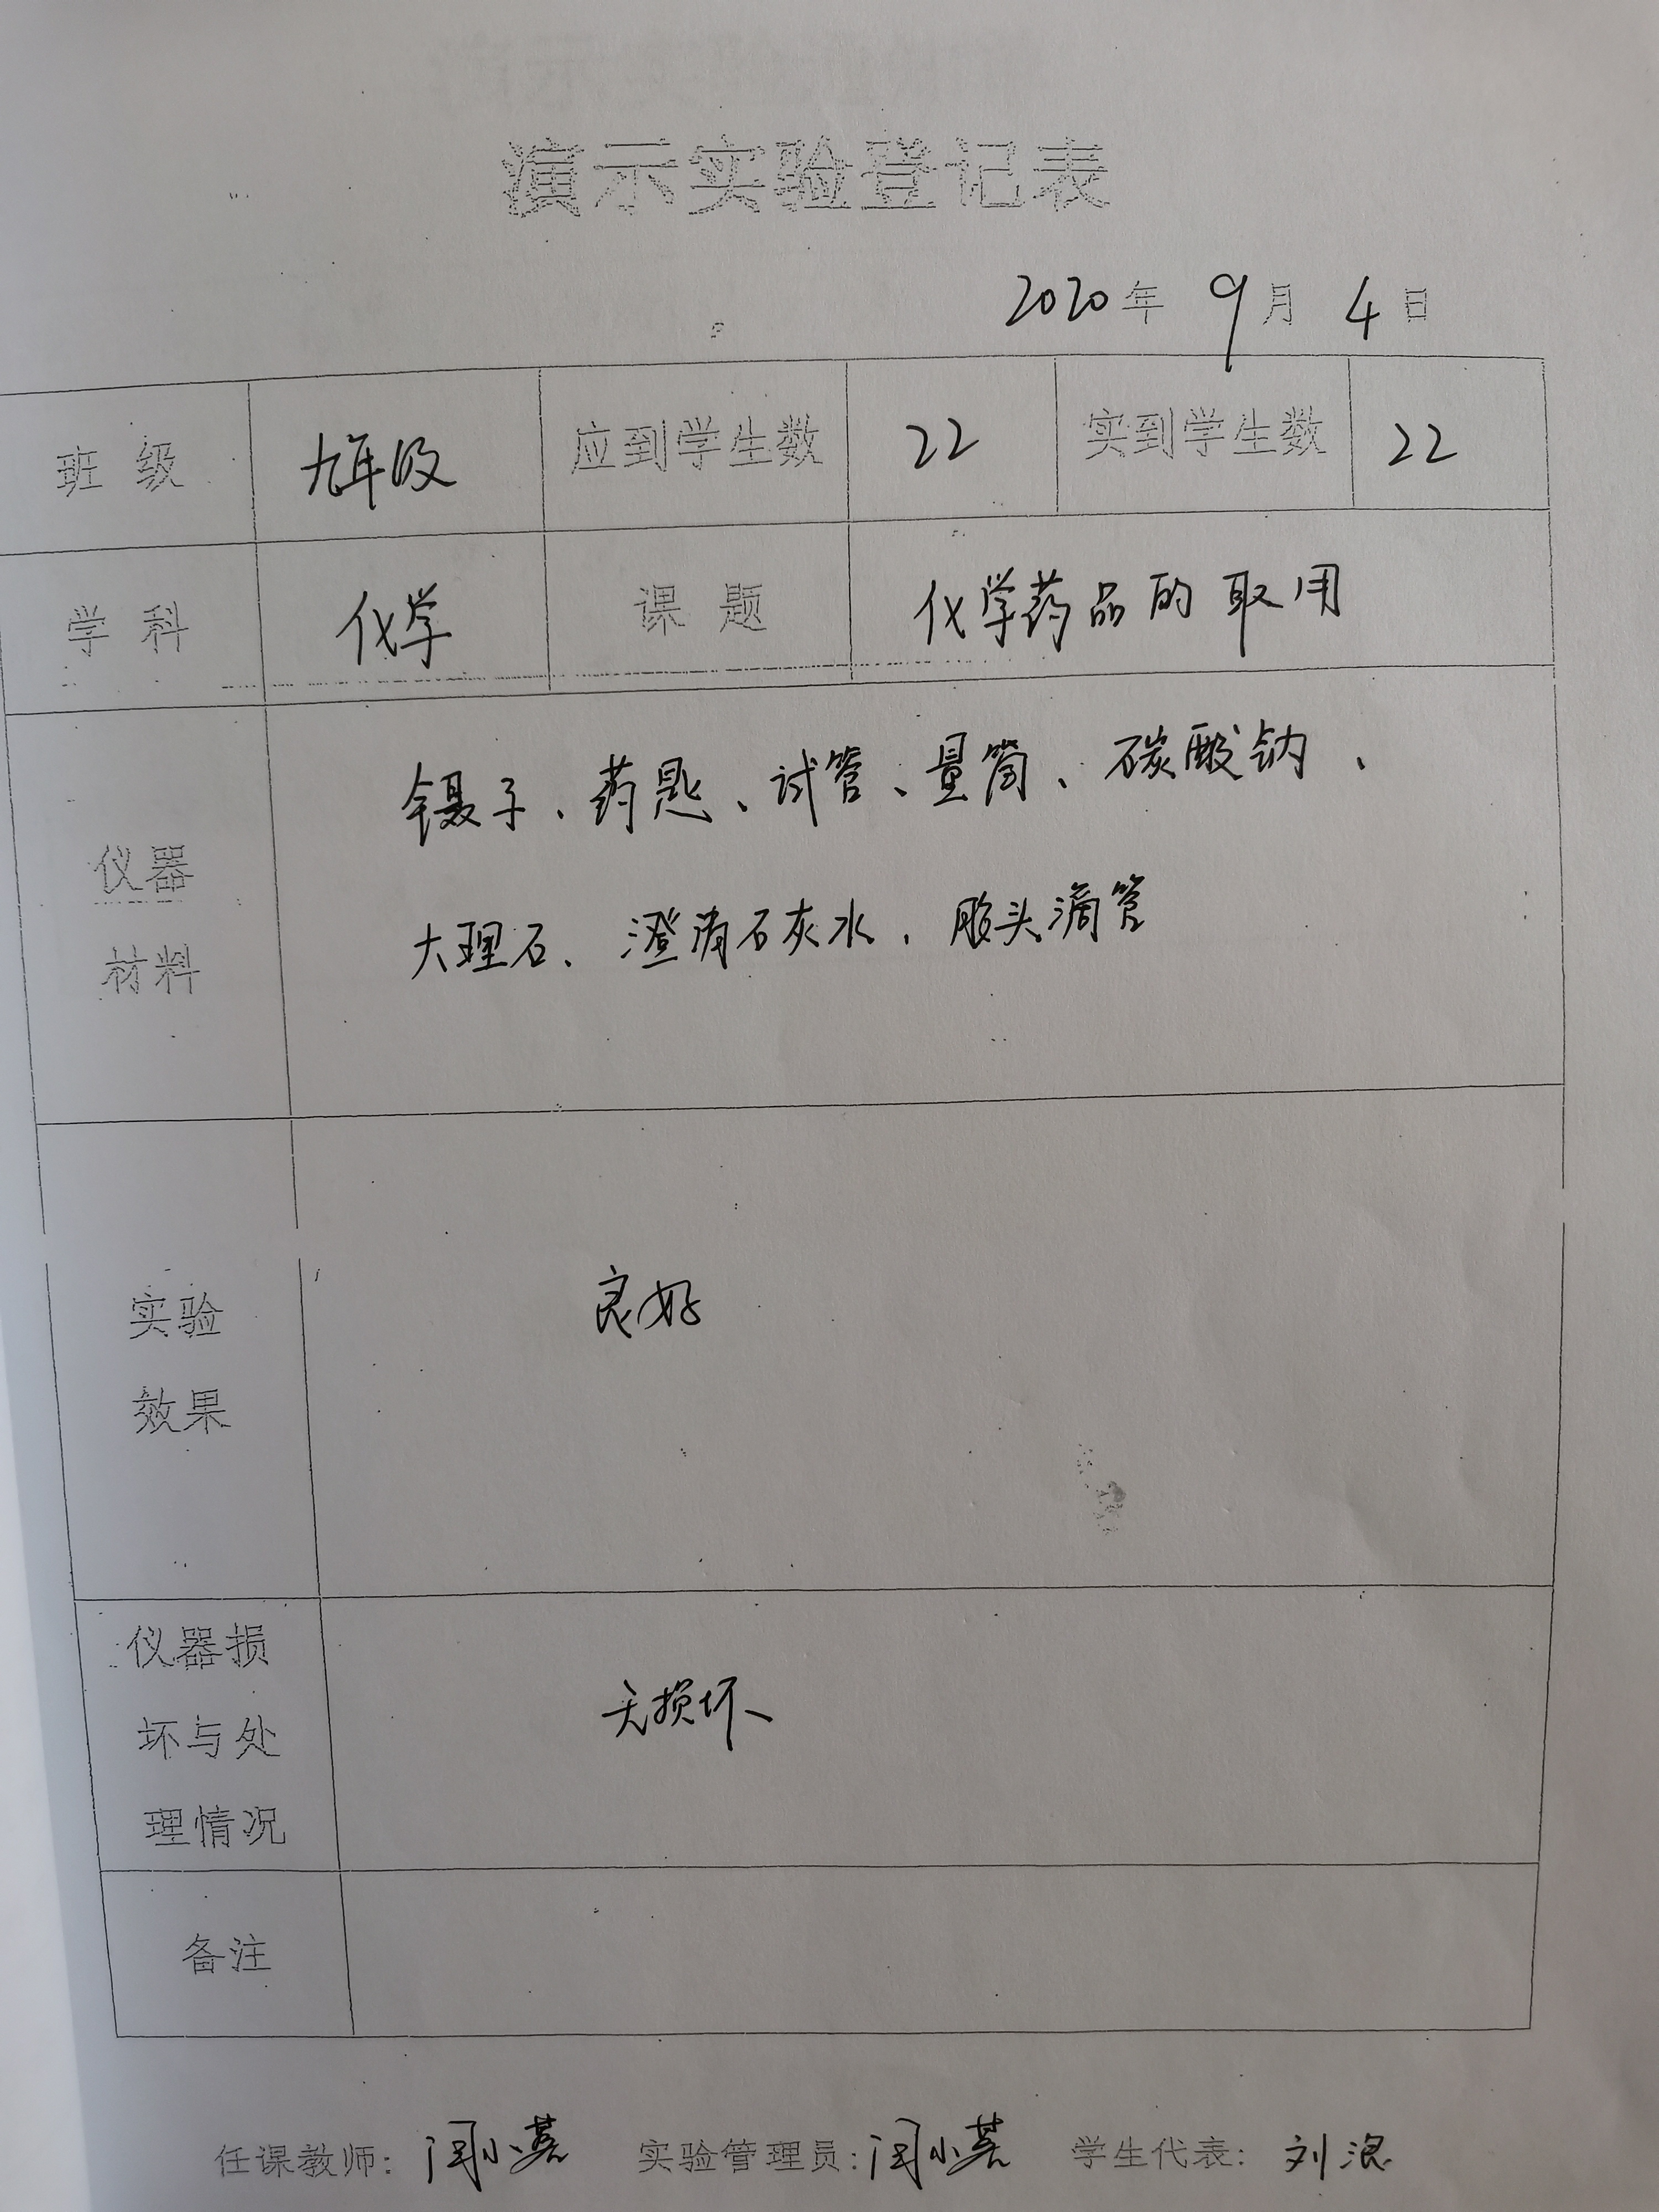 演示实验登记表
2020年 9月 4日
班级 九年级 应到学生数 22 实到学生数 22
学科 化学 课题 化学药品的取用
镊子、药匙、试管、量筒、碳酸钠、
仪器
大理石、澄清石灰水、胶头滴管
材料
良好
实验
效果
仪器损
无损坏
坏与处
理情况
备注
任课教师: 小燕 实验管理员: 小燕 学生代表: 刘浪